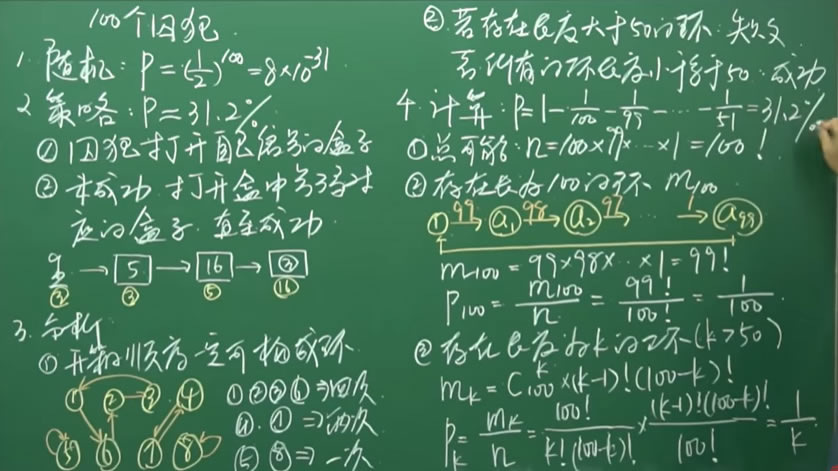 100个囚犯
1. 随机: P=(1/2)^100=8×10^-31
2. 策略: P≈31.2%
① 囚犯打开自己编号的盒子
② 未成功, 打开盒中号码对
应的盒子, 直至成功.
→ 5 → 16 → ③
③ ③ ⑤ ⑯
3. 分析
① 开箱顺序一定可构成环
① ② ③ ④
⑤ ⑥ ⑦ ⑧
①②③⑥⇒四次
④ ⑦⇒两次
⑤ ⑧⇒一次
② 若存在长度大于50的环: 失败
若所有的环长度小于等于50: 成功
4. 计算: P=1-1/100-1/99-…-1/51=31.2%
① 总可能: n=100×99×…×1=100!
② 存在长为100的环 m100
① 99→ a1 98→ a2 97→ … 1→ a99
m100=99×98×…×1=99!
P100=m100/n=99!/100!=1/100
② 存在长度为k的环(k>50)
mk=C100^k×(k-1)!(100-k)!
Pk=mk/n=100!/k!(100-k)!×(k-1)!(100-k)!/100!=1/k